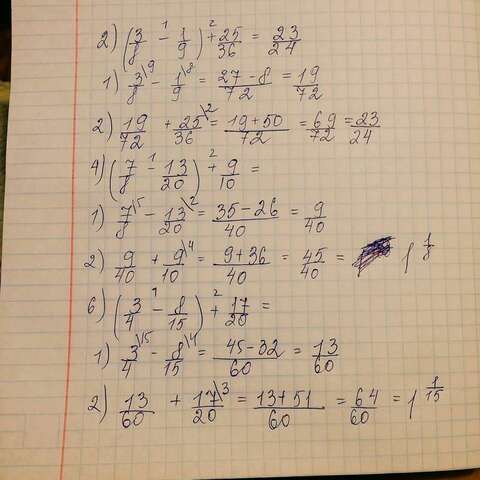 2) (3/8 - 1/9) + 25/36 = 23/24
1) 3/8\9 - 1/9\8 = 27-8/72 = 19/72
2) 19/72 + 25/36\2 = 19+50/72 = 69/72 = 23/24
4) (7/8 - 13/20) + 9/10 =
1) 7/8\5 - 13/20\2 = 35-26/40 = 9/40
2) 9/40 + 9/10\4 = 9+36/40 = 45/40 = 1 1/8
6) (3/4 - 8/15) + 17/20 =
1) 3/4\15 - 8/15\4 = 45-32/60 = 13/60
2) 13/60 + 17/20\3 = 13+51/60 = 64/60 = 1 1/15